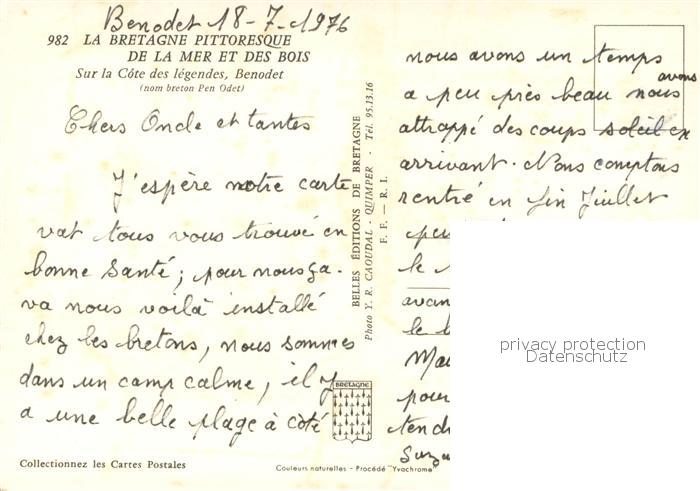 Benodet 18-7-1976
982 LA BRETAGNE PITTORESQUE
DE LA MER ET DES BOIS
Sur la Côte des légendes, Benodet
(nom breton Pen Odet)
Chers Oncle et tantes
J'espère notre carte
vat tous vous trouvé en
bonne santé; pour nous ça.
va nous voilà installé
chez les bretons, nous sommes
dans un camp calme, il y
a une belle plage à côté
Collectionnez les Cartes Postales
BELLES ÉDITIONS DE BRETAGNE
Photo Y. R. CAOUDAL - QUIMPER - Tél. 95.13.16
F. F. — R. I.
BRETAGNE
Couleurs naturelles - Procédé "Yvachrome"
nous avons un temps
a peu près beau nous avons
attrappé des coups soleil en
arrivant. Nous comptons
rentré en fin Juillet
peu
le
avan
le b
Mai
pour
tend
Suza
privacy protection
Datenschutz